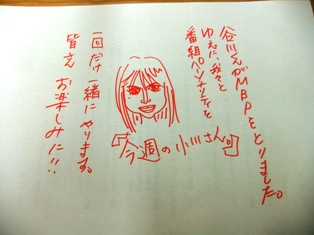 谷川さんがMBPをとりました。
ゆえに、我々と
番組パーソナリティを
『今週の小川さん』
一回だけ一緒にやります。
皆さんお楽しみに!!